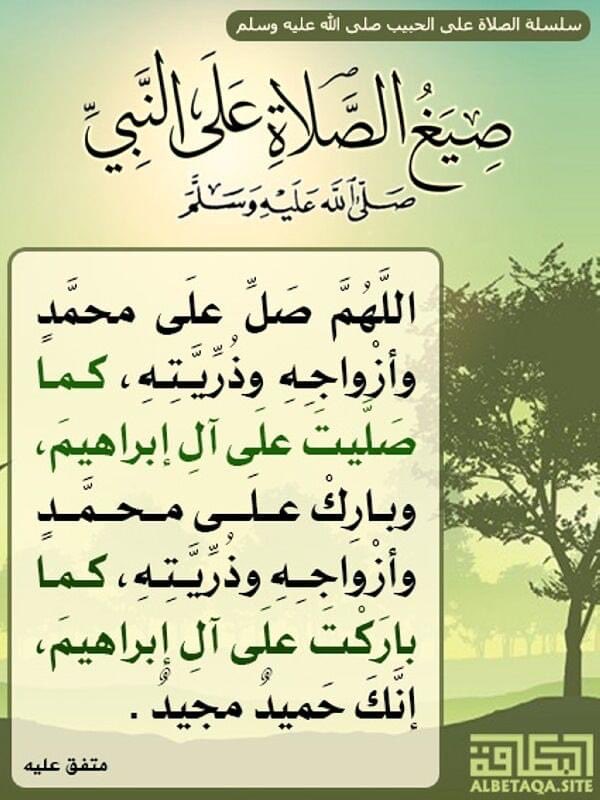 سلسلة الصلاة على الحبيب صلى الله عليه وسلم
صِيَغُ الصَّلَاةِ عَلَى النَّبِيِّ
صَلَّى اللَّه عَلَيْهِ وَسَلَّمَ
اللَّهُمَّ صَلِّ علَى محمَّدٍ
وأزْواجِهِ وذُرِّيَّتِهِ، كما
صَلَّيتَ علَى آلِ إبراهيمَ،
وبارِكْ علَى محمَّدٍ
وأزْواجِهِ وذُرِّيَّتِهِ، كما
بارَكْتَ علَى آلِ إبراهيمَ،
إنَّكَ حَميدٌ مجيدٌ .
متفق عليه
البطاقة
ALBETAQA.SITE